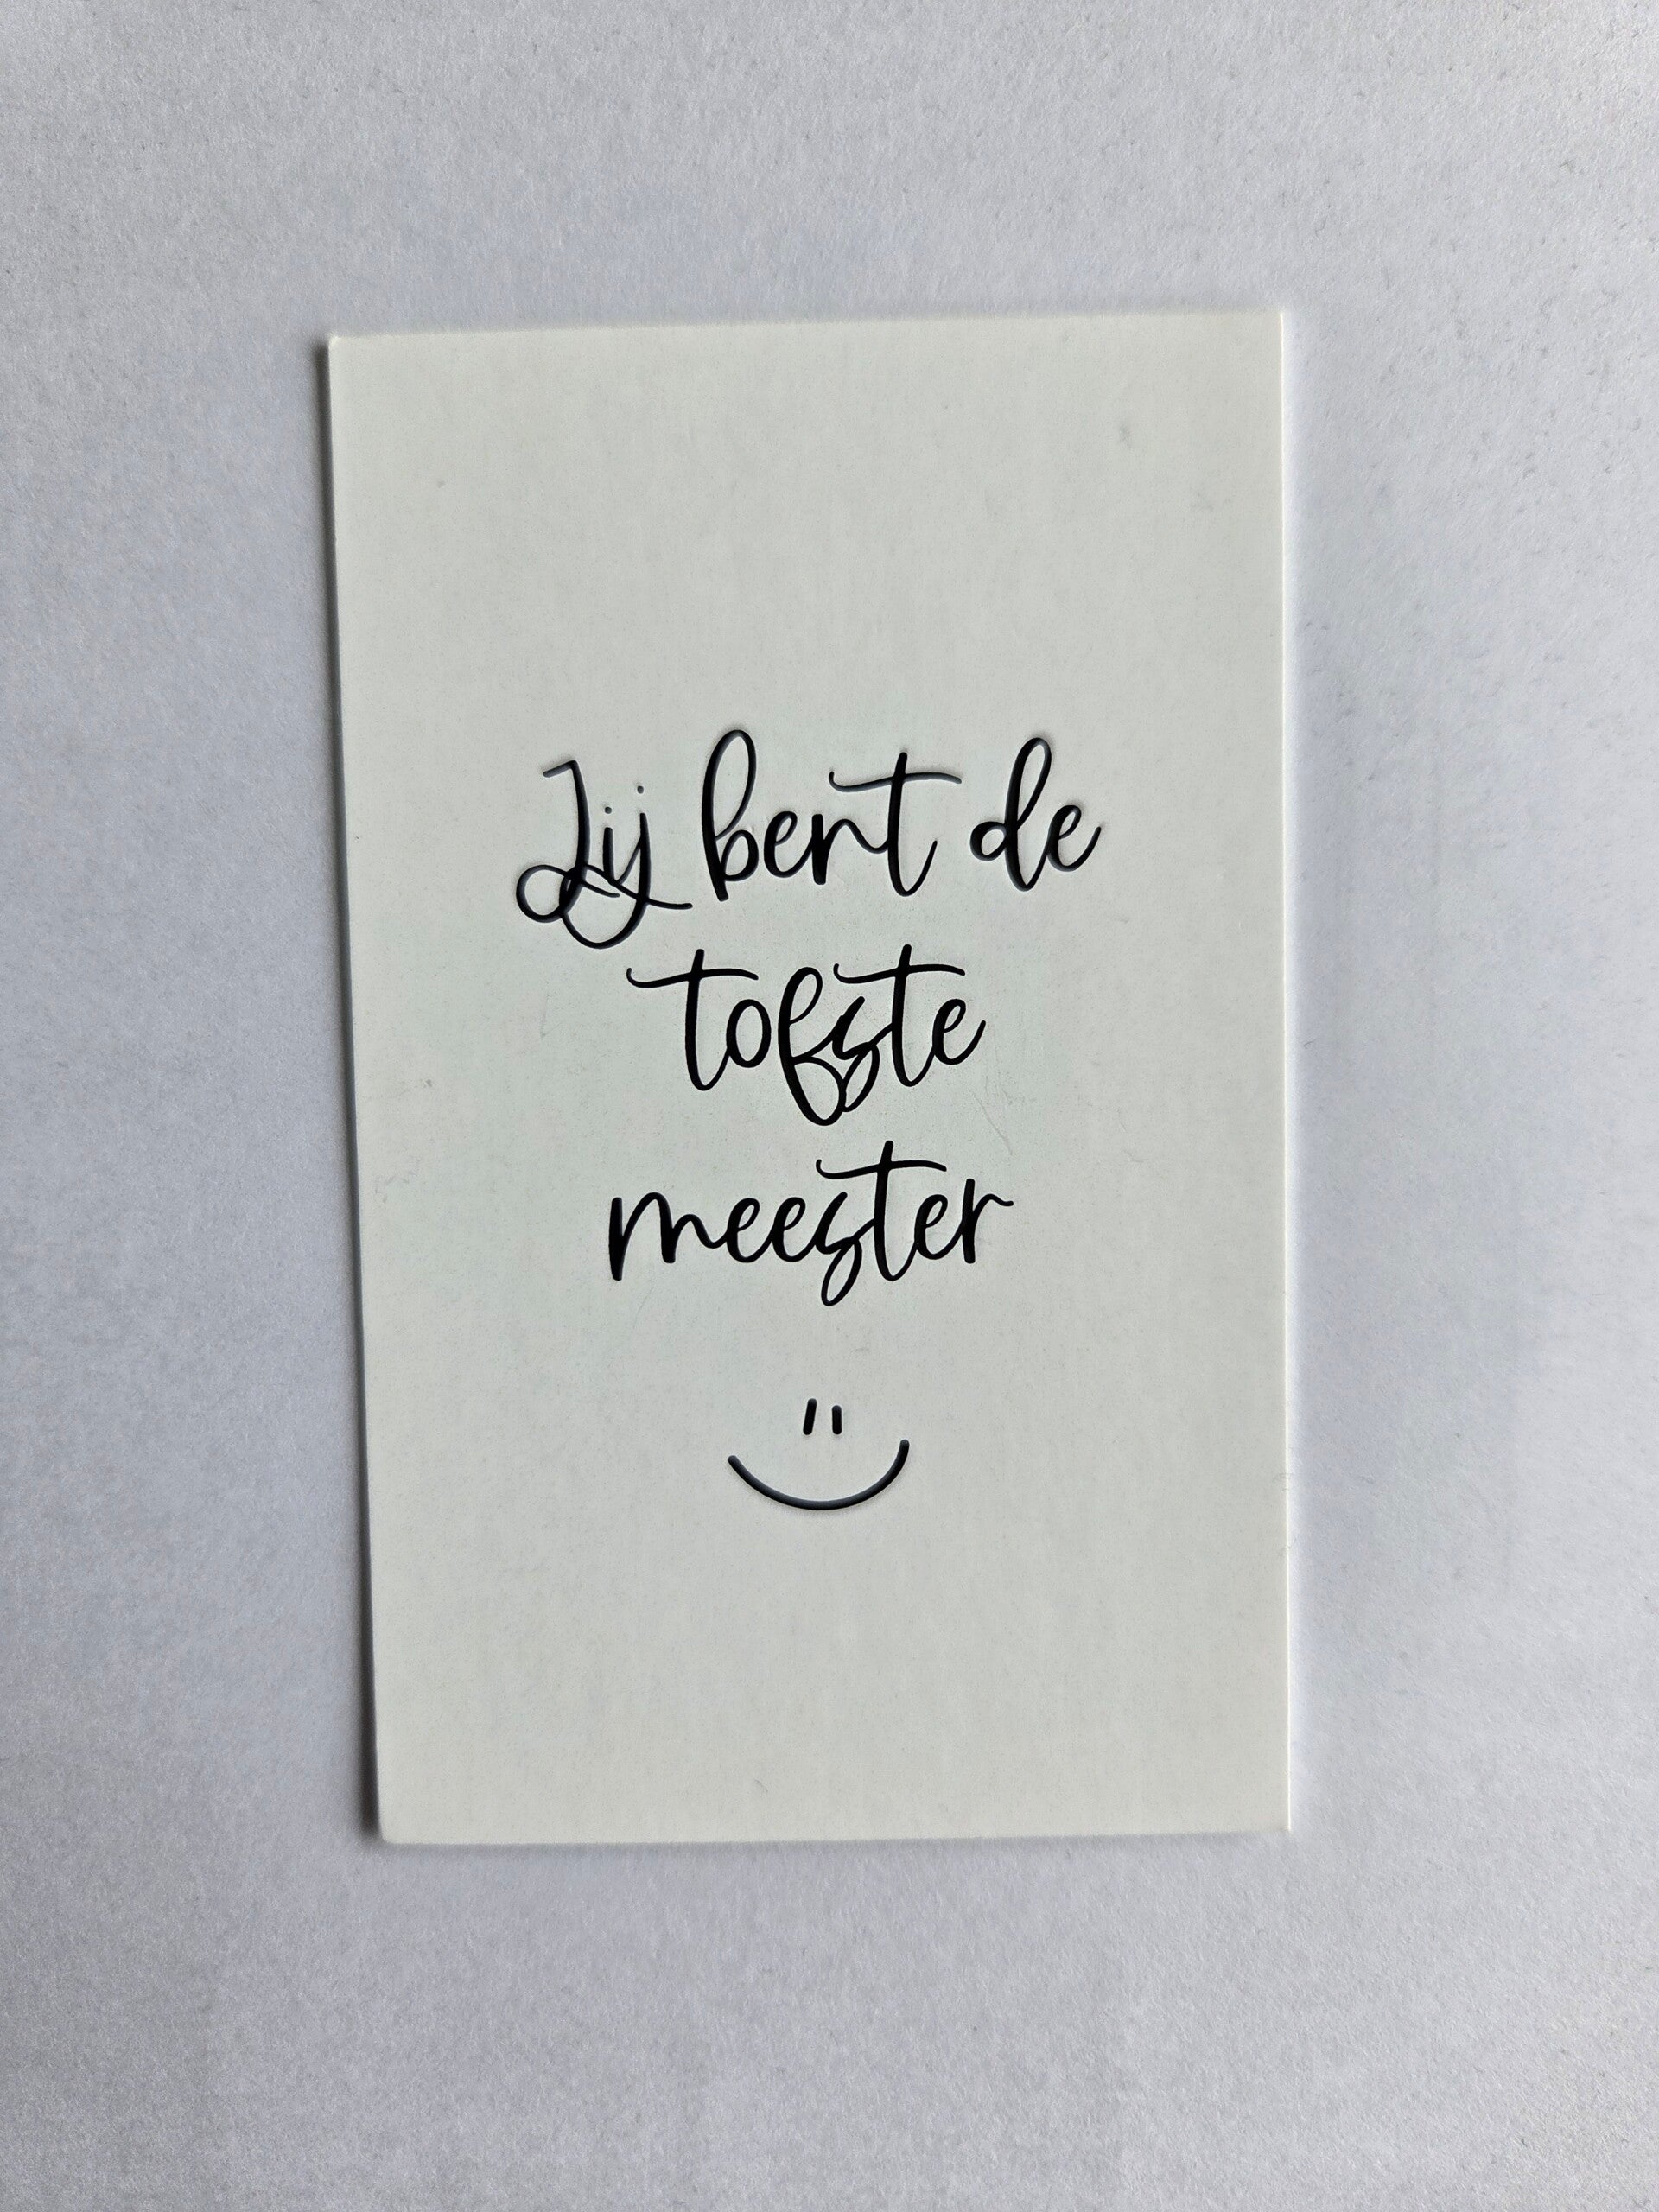 Jij bent de
tofste
meester